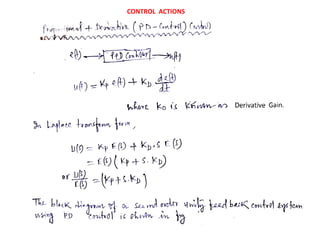 CONTROL ACTIONS
Proportional + Derivative (PD-Control) Control
e(t) → P+D Controller → u(t)
u(t) = Kp e(t) + KD de(t)/dt
where KD is known as Derivative Gain.
In Laplace transform form,
U(s) = Kp E(s) + KD.S E(s)
= E(s) (Kp + S.KD)
or U(s)/E(s) = (Kp + S.KD)
The block diagram of a second order unity feed back control system
using PD control is shown in fig